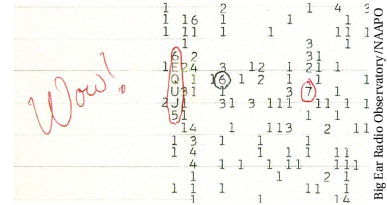 1 2 1 4 3
1 16 1 1 1
1 11 1 1 1
1 3
6 2 3
E 24 3 12 1 21
Q 1 16 1 2 1 1 1
U 31 1 3 7
2 J 31 3 11 1 1
5 1 1
14 1 113 2 11
1 3 1 1 1
1 4 1 1 1
4 1 1 1 11
1 2 1
1 1 1 11
1 1 4
Wow!
Big Ear Radio Observatory/NAAPO